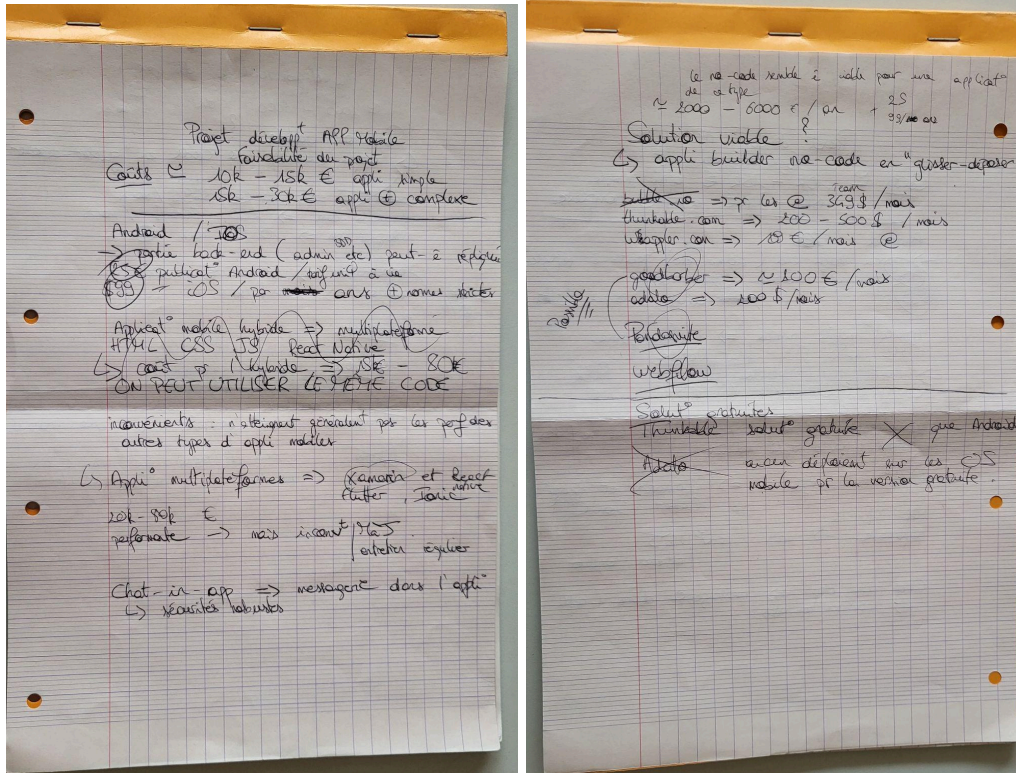 Projet développt APP Mobile
Faisabilité du projet
Coûts ≃ 10k - 15k € appli simple
15k - 30k € appli ⊕ complexe
Android / IOS
-> partie back-end (admin BDD etc) peut-ê répliquée
25€ publicat° Android / à vie
$99 - iOS / par mois ans ⊕ normes strictes
Applicat° mobile hybride => multiplateforme
HTML CSS JS React Native
↳ coût pr l'hybride => 15k€ - 80k€
ON PEUT UTILISER LE MÊME CODE
inconvénients : n'atteignent généralent pas les perf des
autres types d'appli mobiles
↳ Appli° multiplateformes => Xamarin et React native
flutter, Ionic
20k-80k €
performante -> mais inconvt / MàJ.
entretien régulier
Chat-in-app => messagerie dans l'appli°
↳ sécurités robustes
le no-code semble ê viable pour une applicat°
de ce type
≃ 2000 - 6000 € / an + 25
99/ ans
Solution viable ?
↳ appli builder no-code en "glisser-déposer"
bubble io => pr les @ team 349$ /mois
thunkable.com => 200 - 500 $ /mois
wappler.com => € /mois @
goodbarber => ≃ 100 € /mois
adalo => 200 $ /mois
Possible
Pandasuite
webflow
Solut° gratuites
Thunkable solut° gratuite X que Android
Adalo aucun déploiement sur les OS
mobile pr la version gratuite.